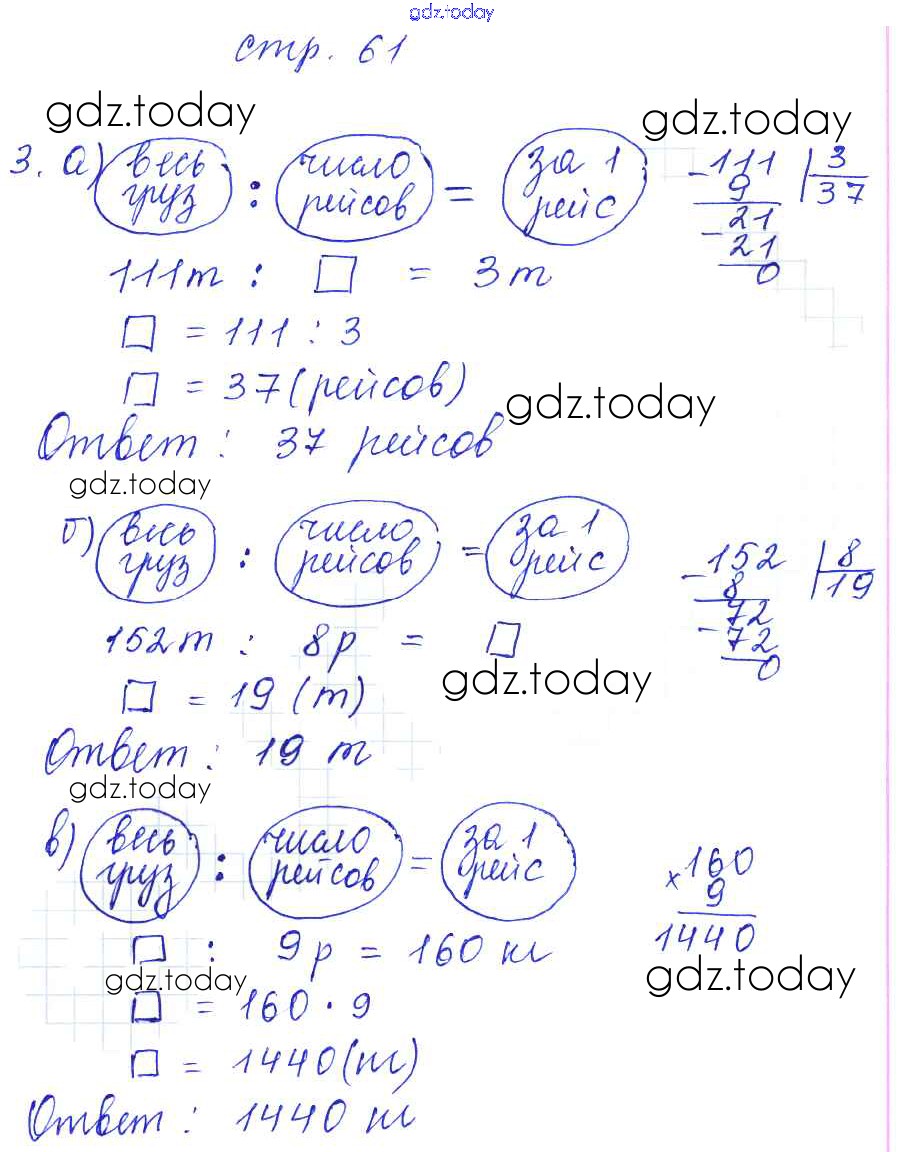 gdz.today
стр. 61
gdz.today
gdz.today
3. а) весь груз : число рейсов = за 1 рейс
111т : □ = 3т
□ = 111 : 3
□ = 37 (рейсов)
-111 | 3
9 37
21
- 21
0
gdz.today
Ответ : 37 рейсов
gdz.today
б) весь груз : число рейсов = за 1 рейс
152т : 8р = □
□ = 19 (т)
-152 | 8
8 19
72
- 72
0
gdz.today
Ответ : 19 т
gdz.today
в) весь груз : число рейсов = за 1 рейс
□ : 9р = 160 кг
□ = 160 · 9
□ = 1440 (кг)
x 160
9
1440
gdz.today
gdz.today
Ответ : 1440 кг